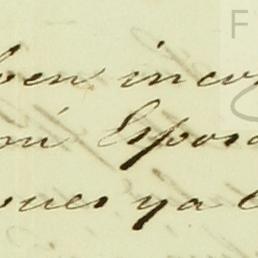 ben inco
mi Espos
ques ya